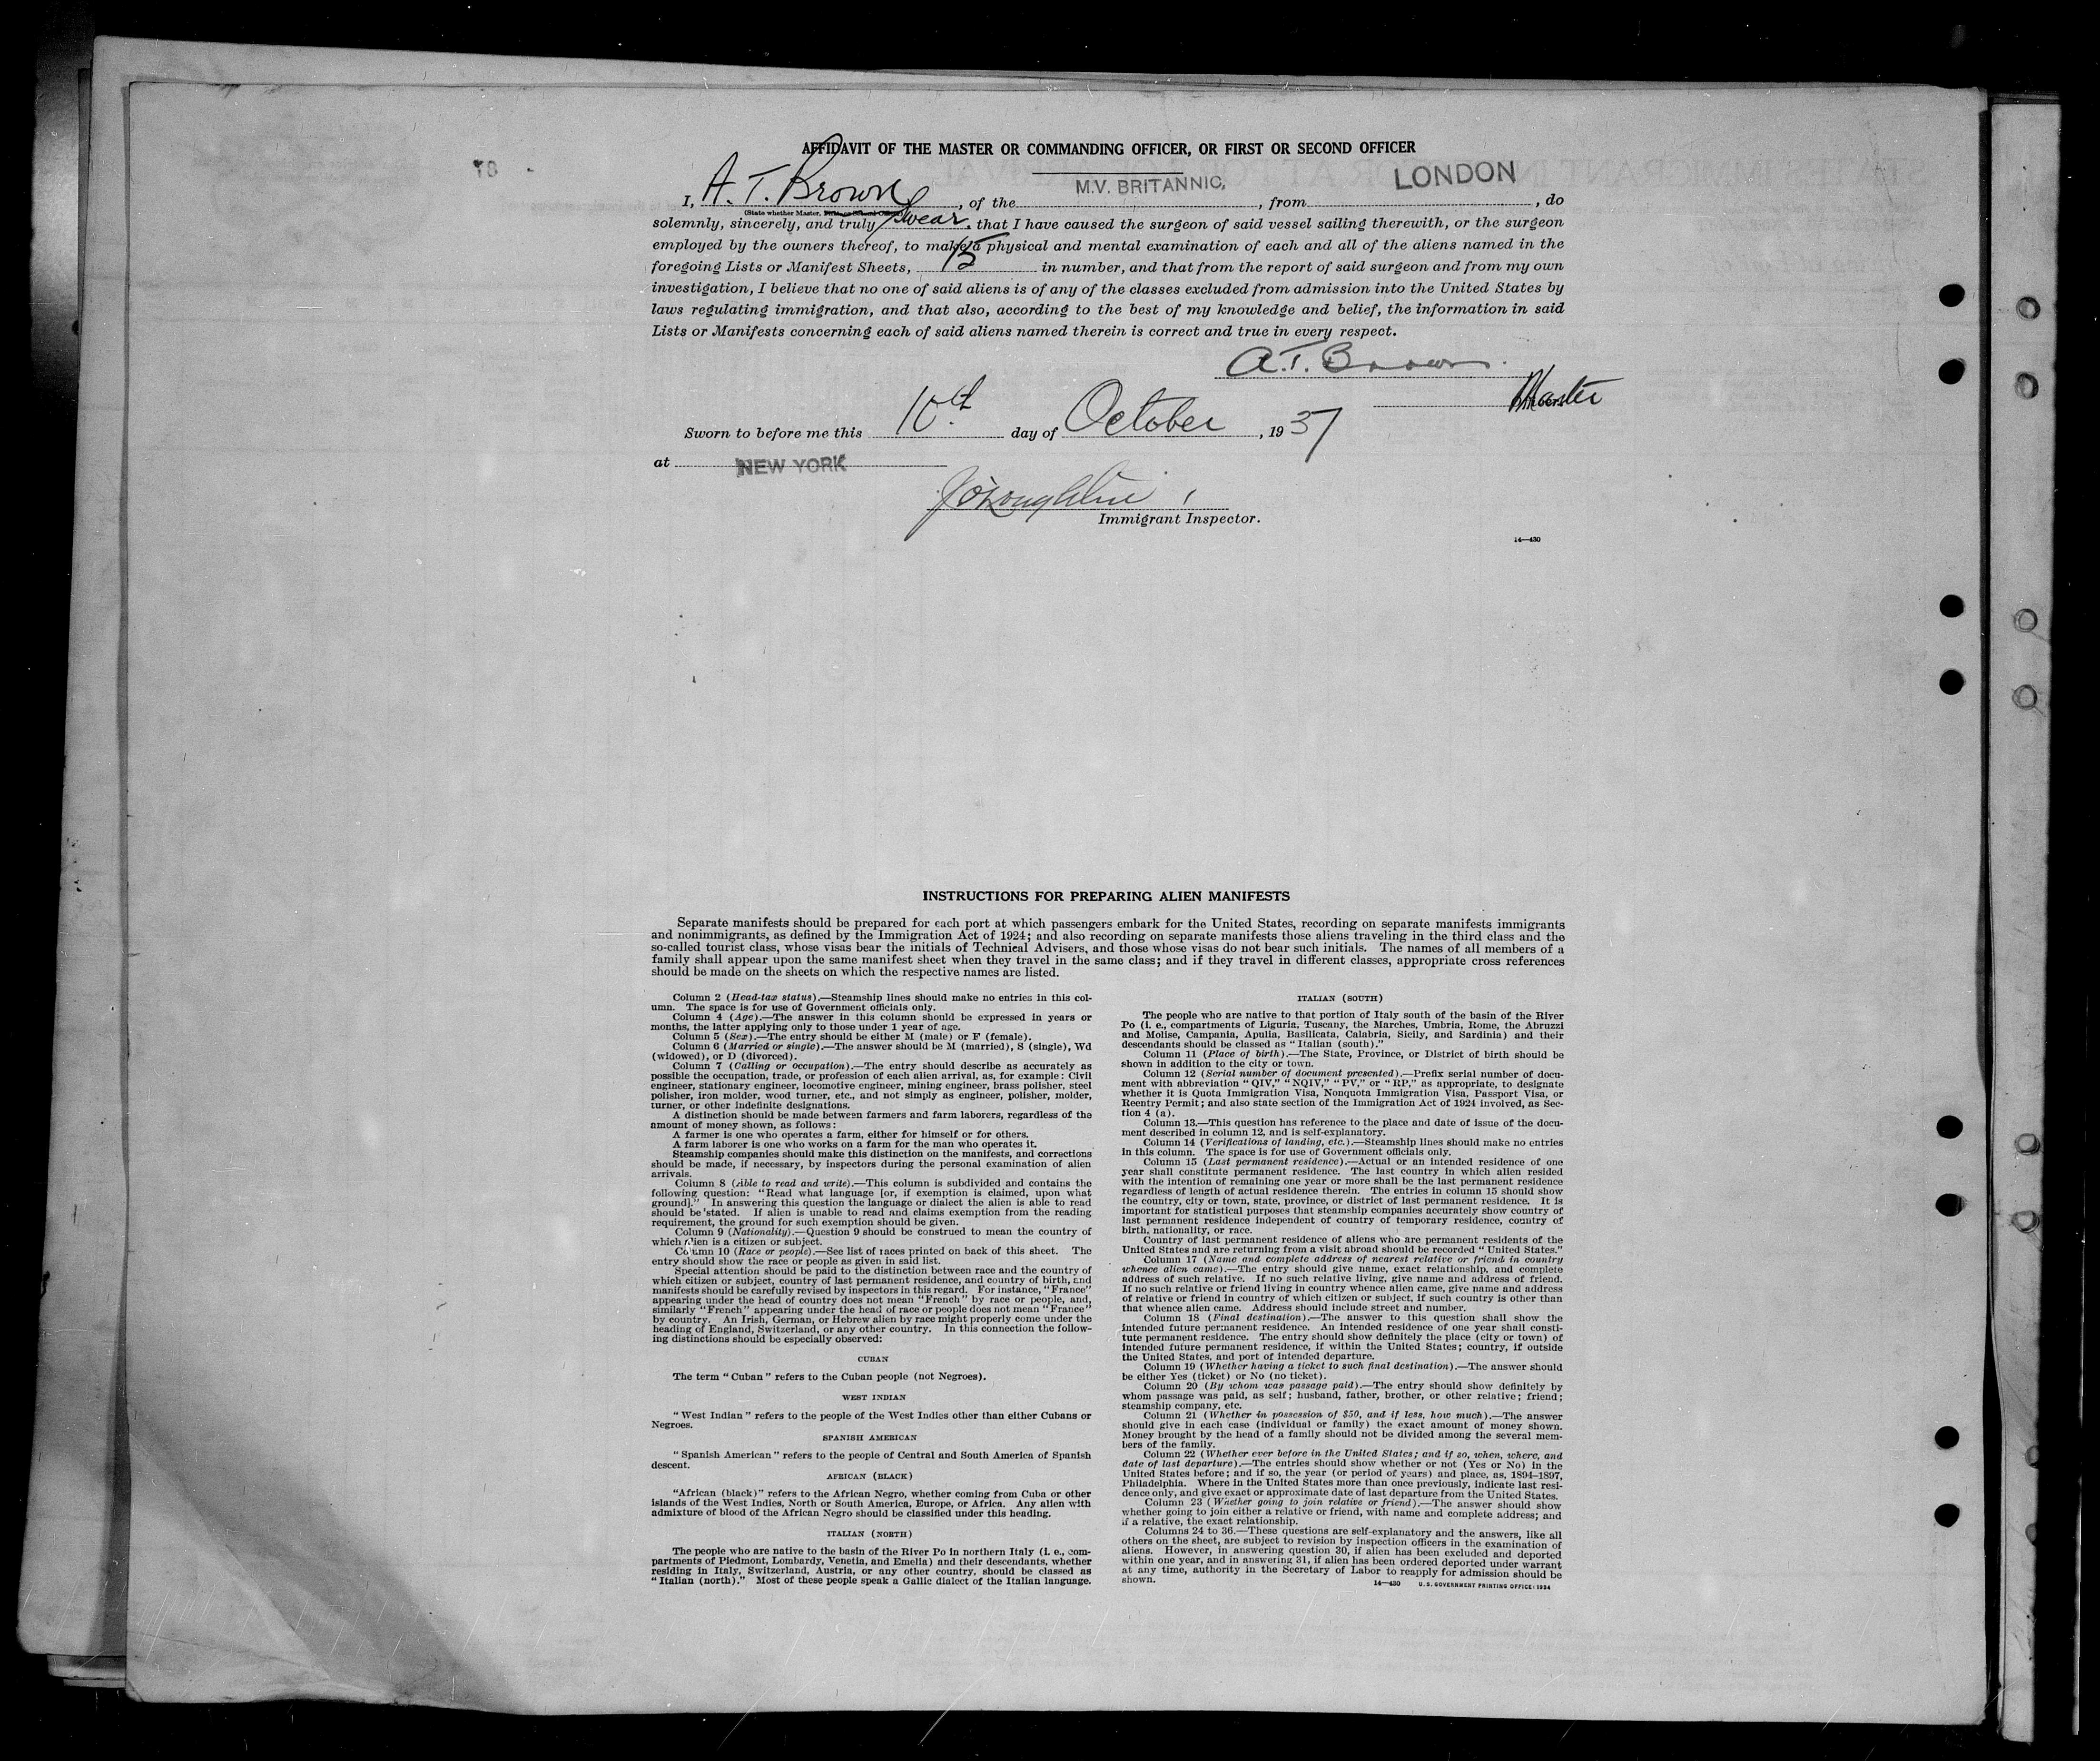 AFFIDAVIT OF THE MASTER OR COMMANDING OFFICER, OR FIRST OR SECOND OFFICER
I, A. T. Brown, of the M.V. BRITANNIC, from LONDON, do
(State whether Master, First, or Second Officer)
solemnly, sincerely, and truly swear that I have caused the surgeon of said vessel sailing therewith, or the surgeon
employed by the owners thereof, to make a physical and mental examination of each and all of the aliens named in the
foregoing Lists or Manifest Sheets, 15 in number, and that from the report of said surgeon and from my own
investigation, I believe that no one of said aliens is of any of the classes excluded from admission into the United States by
laws regulating immigration, and that also, according to the best of my knowledge and belief, the information in said
Lists or Manifests concerning each of said aliens named therein is correct and true in every respect.
A.T. Brown
Master
Sworn to before me this 10th day of October, 1937
at NEW YORK
Immigrant Inspector.
14—430
INSTRUCTIONS FOR PREPARING ALIEN MANIFESTS
Separate manifests should be prepared for each port at which passengers embark for the United States, recording on separate manifests immigrants
and nonimmigrants, as defined by the Immigration Act of 1924; and also recording on separate manifests those aliens traveling in the third class and the
so-called tourist class, whose visas bear the initials of Technical Advisers, and those whose visas do not bear such initials. The names of all members of a
family shall appear upon the same manifest sheet when they travel in the same class; and if they travel in different classes, appropriate cross references
should be made on the sheets on which the respective names are listed.
Column 2 (Head-tax status).—Steamship lines should make no entries in this col-
umn. The space is for use of Government officials only.
Column 4 (Age).—The answer in this column should be expressed in years or
months, the latter applying only to those under 1 year of age.
Column 5 (Sex).—The entry should be either M (male) or F (female).
Column 6 (Married or single).—The answer should be M (married), S (single), Wd
(widowed), or D (divorced).
Column 7 (Calling or occupation).—The entry should describe as accurately as
possible the occupation, trade, or profession of each alien arrival, as, for example: Civil
engineer, stationary engineer, locomotive engineer, mining engineer, brass polisher, steel
polisher, iron molder, wood turner, etc., and not simply as engineer, polisher, molder,
turner, or other indefinite designations.
A distinction should be made between farmers and farm laborers, regardless of the
amount of money shown, as follows:
A farmer is one who operates a farm, either for himself or for others.
A farm laborer is one who works on a farm for the man who operates it.
Steamship companies should make this distinction on the manifests, and corrections
should be made, if necessary, by inspectors during the personal examination of alien
arrivals.
Column 8 (Able to read and write).—This column is subdivided and contains the
following question: "Read what language [or, if exemption is claimed, upon what
ground]." In answering this question the language or dialect the alien is able to read
should be stated. If alien is unable to read and claims exemption from the reading
requirement, the ground for such exemption should be given.
Column 9 (Nationality).—Question 9 should be construed to mean the country of
which alien is a citizen or subject.
Column 10 (Race or people).—See list of races printed on back of this sheet. The
entry should show the race or people as given in said list.
Special attention should be paid to the distinction between race and the country of
which citizen or subject, country of last permanent residence, and country of birth, and
manifests should be carefully revised by inspectors in this regard. For instance, "France"
appearing under the head of country does not mean "French" by race or people, and,
similarly "French" appearing under the head of race or people does not mean "France"
by country. An Irish, German, or Hebrew alien by race might properly come under the
heading of England, Switzerland, or any other country. In this connection the follow-
ing distinctions should be especially observed:
CUBAN
The term "Cuban" refers to the Cuban people (not Negroes).
WEST INDIAN
"West Indian" refers to the people of the West Indies other than either Cubans or
Negroes.
SPANISH AMERICAN
"Spanish American" refers to the people of Central and South America of Spanish
descent.
AFRICAN (BLACK)
"African (black)" refers to the African Negro, whether coming from Cuba or other
islands of the West Indies, North or South America, Europe, or Africa. Any alien with
admixture of blood of the African Negro should be classified under this heading.
ITALIAN (NORTH)
The people who are native to the basin of the River Po in northern Italy (i. e., com-
partments of Piedmont, Lombardy, Venetia, and Emelia) and their descendants, whether
residing in Italy, Switzerland, Austria, or any other country, should be classed as
"Italian (north)." Most of these people speak a Gallic dialect of the Italian language.
ITALIAN (SOUTH)
The people who are native to that portion of Italy south of the basin of the River
Po (i. e., compartments of Liguria, Tuscany, the Marches, Umbria, Rome, the Abruzzi
and Molise, Campania, Apulia, Basilicata, Calabria, Sicily, and Sardinia) and their
descendants should be classed as "Italian (south)."
Column 11 (Place of birth).—The State, Province, or District of birth should be
shown in addition to the city or town.
Column 12 (Serial number of document presented).—Prefix serial number of docu-
ment with abbreviation "QIV," "NQIV," "PV," or "RP," as appropriate, to designate
whether it is Quota Immigration Visa, Nonquota Immigration Visa, Passport Visa, or
Reentry Permit; and also state section of the Immigration Act of 1924 involved, as Sec-
tion 4 (a).
Column 13.—This question has reference to the place and date of issue of the docu-
ment described in column 12, and is self-explanatory.
Column 14 (Verifications of landing, etc.).—Steamship lines should make no entries
in this column. The space is for use of Government officials only.
Column 15 (Last permanent residence).—Actual or an intended residence of one
year shall constitute permanent residence. The last country in which alien resided
with the intention of remaining one year or more shall be the last permanent residence
regardless of length of actual residence therein. The entries in column 15 should show
the country, city or town, state, province, or district of last permanent residence. It is
important for statistical purposes that steamship companies accurately show country of
last permanent residence independent of country of temporary residence, country of
birth, nationality, or race.
Country of last permanent residence of aliens who are permanent residents of the
United States and are returning from a visit abroad should be recorded "United States."
Column 17 (Name and complete address of nearest relative or friend in country
whence alien came).—The entry should give name, exact relationship, and complete
address of such relative. If no such relative living, give name and address of friend.
If no such relative or friend living in country whence alien came, give name and address
of relative or friend in country of which citizen or subject, if such country is other than
that whence alien came. Address should include street and number.
Column 18 (Final destination).—The answer to this question shall show the
intended future permanent residence. An intended residence of one year shall consti-
tute permanent residence. The entry should show definitely the place (city or town) of
intended future permanent residence, if within the United States; country, if outside
the United States, and port of intended departure.
Column 19 (Whether having a ticket to such final destination).—The answer should
be either Yes (ticket) or No (no ticket).
Column 20 (By whom was passage paid).—The entry should show definitely by
whom passage was paid, as self; husband, father, brother, or other relative; friend;
steamship company, etc.
Column 21 (Whether in possession of $50, and if less, how much).—The answer
should give in each case (individual or family) the exact amount of money shown.
Money brought by the head of a family should not be divided among the several mem-
bers of the family.
Column 22 (Whether ever before in the United States; and if so, when, where, and
date of last departure).—The entries should show whether or not (Yes or No) in the
United States before; and if so, the year (or period of years) and place, as, 1894–1897,
Philadelphia. Where in the United States more than once previously, indicate last resi-
dence only, and give exact or approximate date of last departure from the United States.
Column 23 (Whether going to join relative or friend).—The answer should show
whether going to join either a relative or friend, with name and complete address; and
if a relative, the exact relationship.
Columns 24 to 36.—These questions are self-explanatory and the answers, like all
others on the sheet, are subject to revision by inspection officers in the examination of
aliens. However, in answering question 30, if alien has been excluded and deported
within one year, and in answering 31, if alien has been ordered deported under warrant
at any time, authority in the Secretary of Labor to reapply for admission should be
shown.
14—430 U. S. GOVERNMENT PRINTING OFFICE: 1934